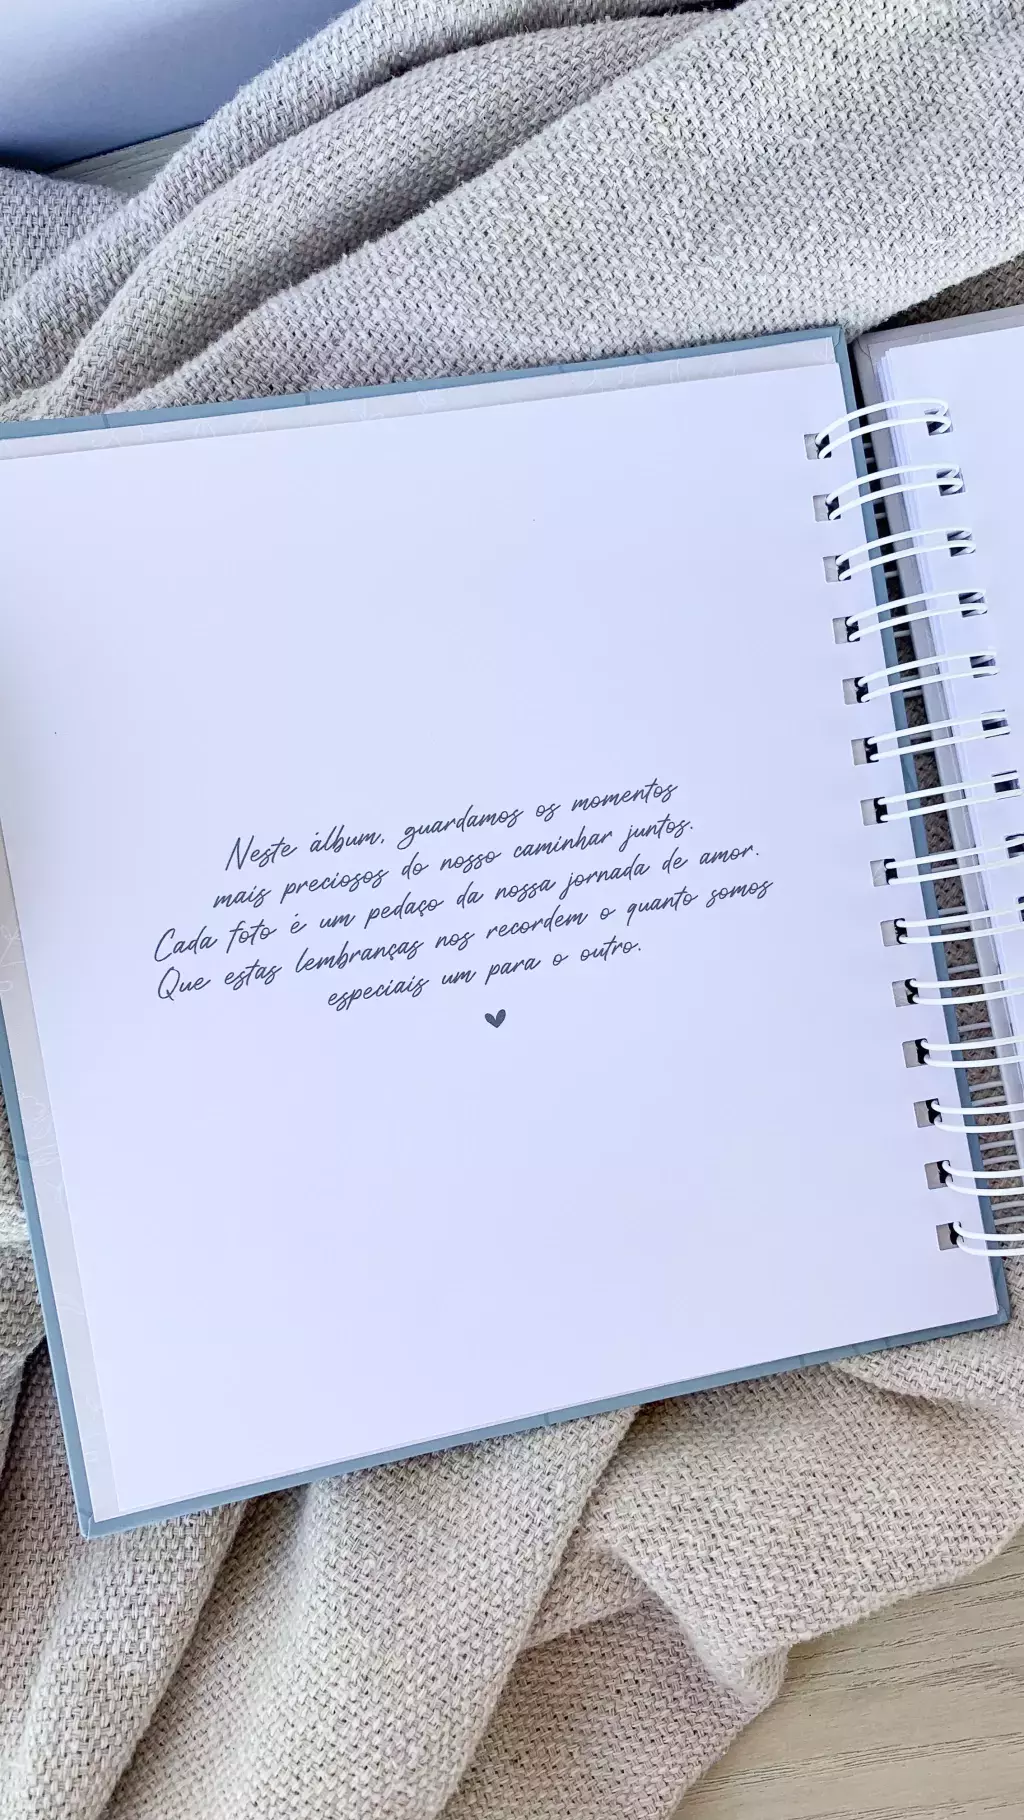 Neste álbum, guardamos os momentos
mais preciosos do nosso caminhar juntos.
Cada foto é um pedaço da nossa jornada de amor.
Que estas lembranças nos recordem o quanto somos
especiais um para o outro.